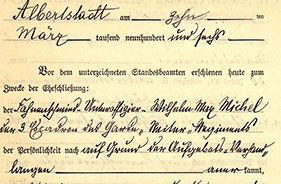 Albertstadt am zehnten
März tausend neunhundert und sechs
Vor dem unterzeichneten Standesbeamten erschienen heute zum
Zwecke der Eheschließung:
der Fahnenschmied-Unteroffizier Wilhelm Max Michel
der 3 Escadron des Garde-Reiter-Regiments
der Persönlichkeit nach auf Grund der Aufgebots-Verhand-
lungen anerkannt,